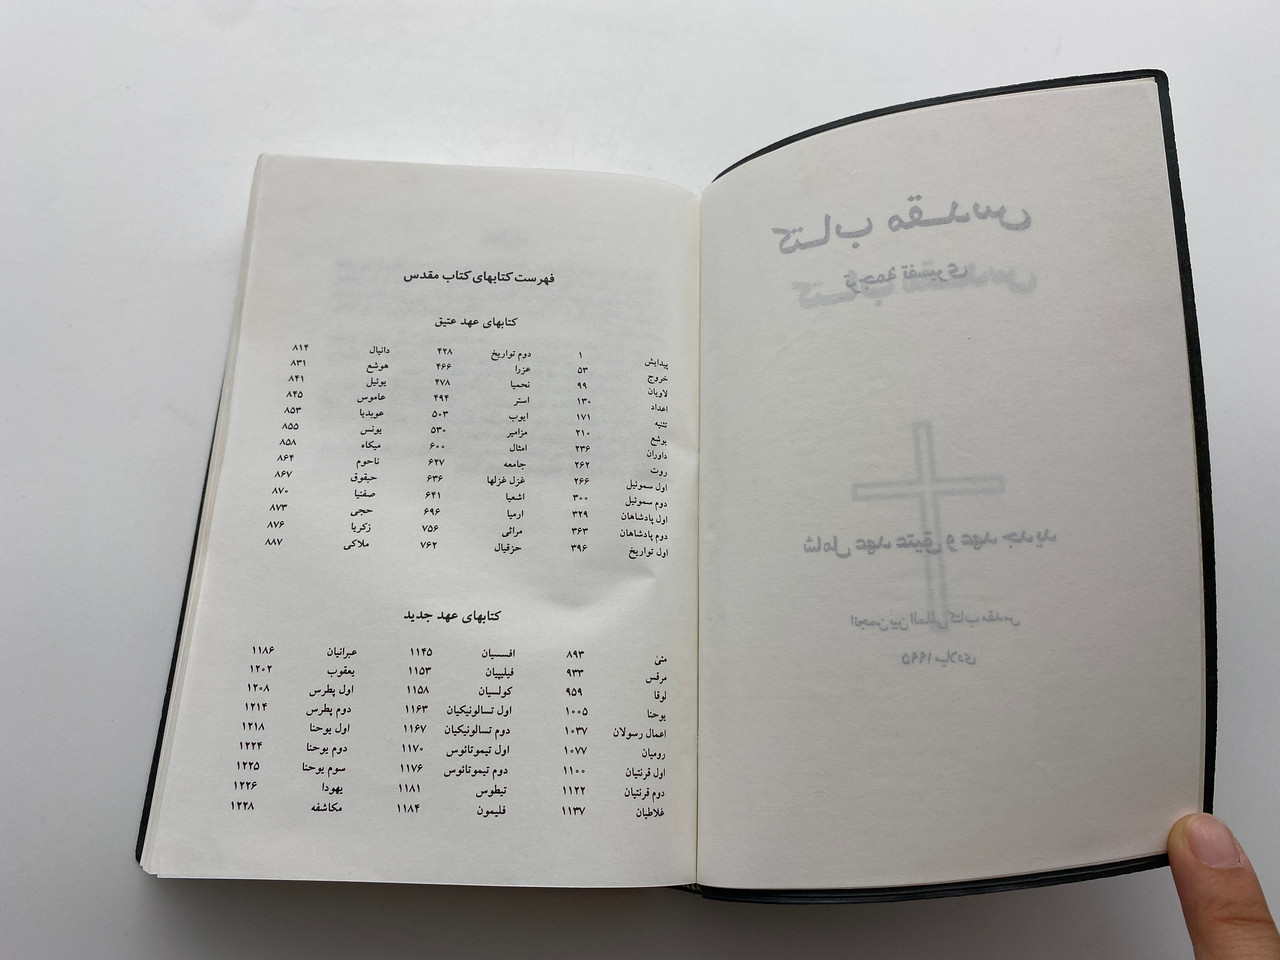 کتاب مقدس
ترجمهٔ تفسیری
شامل عهد عتیق و عهد جدید
انجمن بین المللی کتاب مقدس
۱۹۹۵ میلادی
فهرست کتابهای کتاب مقدس
کتابهای عهد عتیق
پیدایش ۱ دوم تواریخ ۴۲۸ دانیال ۸۱۴
خروج ۵۳ عزرا ۴۶۶ هوشع ۸۳۱
لاویان ۹۹ نحمیا ۴۷۸ یوئیل ۸۴۱
اعداد ۱۳۰ استر ۴۹۴ عاموس ۸۴۵
تثنیه ۱۷۱ ایوب ۵۰۳ عوبدیا ۸۵۳
یوشع ۲۱۰ مزامیر ۵۳۰ یونس ۸۵۵
داوران ۲۳۶ امثال ۶۰۰ میکاه ۸۵۸
روت ۲۶۲ جامعه ۶۲۷ ناحوم ۸۶۴
اول سموئیل ۲۶۶ غزل غزلها ۶۳۶ حبقوق ۸۶۷
دوم سموئیل ۳۰۰ اشعیا ۶۴۱ صفنیا ۸۷۰
اول پادشاهان ۳۲۹ ارمیا ۶۹۶ حجی ۸۷۳
دوم پادشاهان ۳۶۳ مراثی ۷۵۶ زکریا ۸۷۶
اول تواریخ ۳۹۶ حزقیال ۷۶۲ ملاکی ۸۸۷
کتابهای عهد جدید
متیٰ ۸۹۳ افسسیان ۱۱۴۵ عبرانیان ۱۱۸۶
مرقس ۹۳۳ فیلیپیان ۱۱۵۳ یعقوب ۱۲۰۲
لوقا ۹۵۹ کولسیان ۱۱۵۸ اول پطرس ۱۲۰۸
یوحنا ۱۰۰۵ اول تسالونیکیان ۱۱۶۳ دوم پطرس ۱۲۱۴
اعمال رسولان ۱۰۳۷ دوم تسالونیکیان ۱۱۶۷ اول یوحنا ۱۲۱۸
رومیان ۱۰۷۷ اول تیموتائوس ۱۱۷۰ دوم یوحنا ۱۲۲۴
اول قرنتیان ۱۱۰۰ دوم تیموتائوس ۱۱۷۶ سوم یوحنا ۱۲۲۵
دوم قرنتیان ۱۱۲۲ تیطوس ۱۱۸۱ یهودا ۱۲۲۶
غلاطیان ۱۱۳۷ فلیمون ۱۱۸۴ مکاشفه ۱۲۲۸